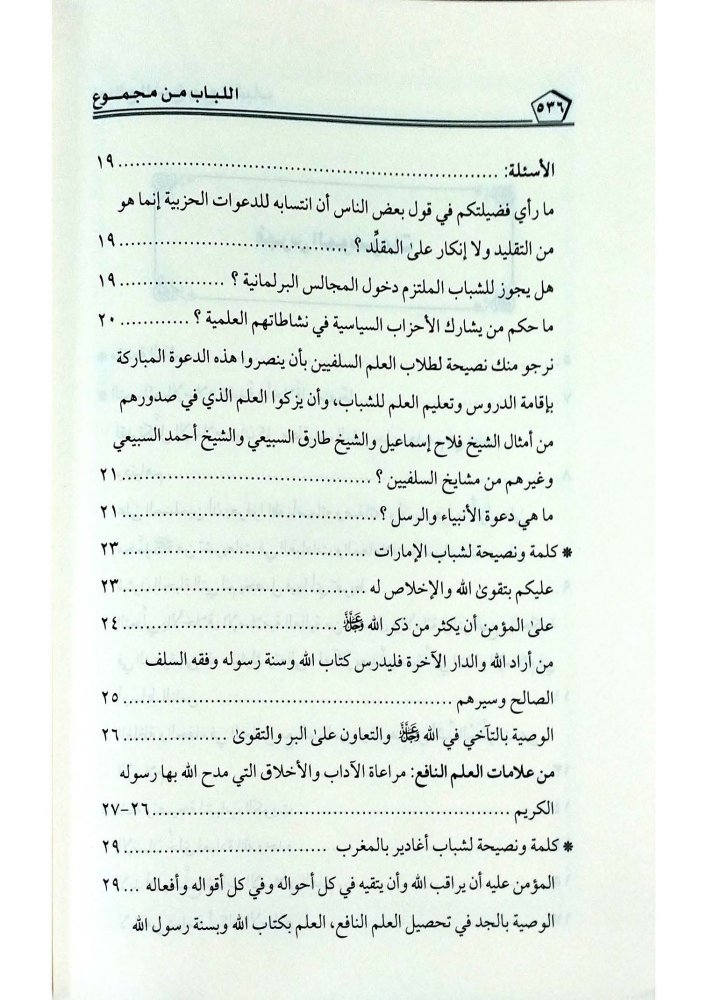 ٥٣٦
اللباب من مجموع
الأسئلة: ................................................ ١٩
ما رأي فضيلتكم في قول بعض الناس أن انتسابه للدعوات الحزبية إنما هو
من التقليد ولا إنكار علىٰ المقلِّد ؟ ................................ ١٩
هل يجوز للشباب الملتزم دخول المجالس البرلمانية ؟ ................ ١٩
ما حكم من يشارك الأحزاب السياسية في نشاطاتهم العلمية ؟ ............ ٢٠
نرجو منك نصيحة لطلاب العلم السلفيين بأن ينصروا هذه الدعوة المباركة
بإقامة الدروس وتعليم العلم للشباب، وأن يزكوا العلم الذي في صدورهم
من أمثال الشيخ فلاح إسماعيل والشيخ طارق السبيعي والشيخ أحمد السبيعي
وغيرهم من مشايخ السلفيين ؟ ................................ ٢١
ما هي دعوة الأنبياء والرسل ؟ ................................ ٢١
* كلمة ونصيحة لشباب الإمارات ................................ ٢٣
عليكم بتقوىٰ الله والإخلاص له ................................ ٢٣
علىٰ المؤمن أن يكثر من ذكر الله عز وجل ................................ ٢٤
من أراد الله والدار الآخرة فليدرس كتاب الله وسنة رسوله وفقه السلف
الصالح وسيرهم ................................ ٢٥
الوصية بالتآخي في الله عز وجل والتعاون علىٰ البر والتقوىٰ ................ ٢٦
من علامات العلم النافع: مراعاة الآداب والأخلاق التي مدح الله بها رسوله
الكريم ................................ ٢٦-٢٧
* كلمة ونصيحة لشباب أغادير بالمغرب ........................ ٢٩
المؤمن عليه أن يراقب الله وأن يتقيه في كل أحواله وفي كل أقواله وأفعاله ... ٢٩
الوصية بالجد في تحصيل العلم النافع، العلم بكتاب الله وبسنة رسول الله